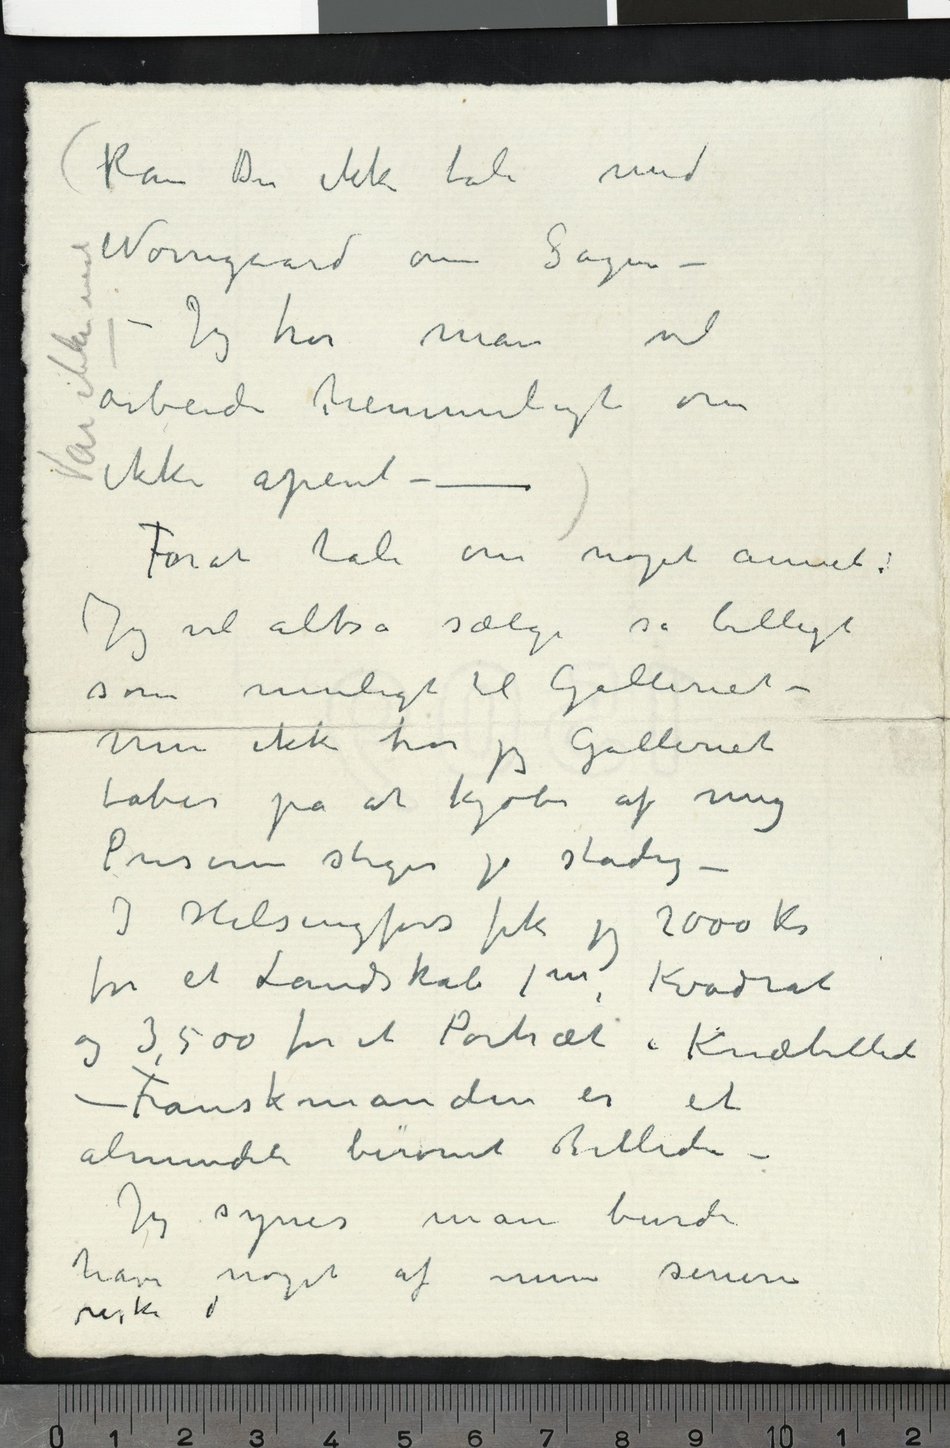 (Kan Du ikke tale med
Norregaard om Sagen –
– Jeg tror man vil
arbeide hemmeligt om
ikke apent – — )
Var ikke med
Forat tale om noget annet:
Jeg vil altsa sælge sa billigt
som muligt til Galleriet –
men ikke tror jeg Galleriet
taber pa at kjøbe af mig
Priserne stiger jo stadig –
I Helsingfors fik jeg 2000 Kr
for et Landskab 1 m, Kvadrat
og 3,500 for et Portræt i Knæbillede
– Franskmanden er et
almindeli berømt Billede –
Jeg synes man burde
have noget af mine senere
raske
0 1 2 3 4 5 6 7 8 9 10 1 2